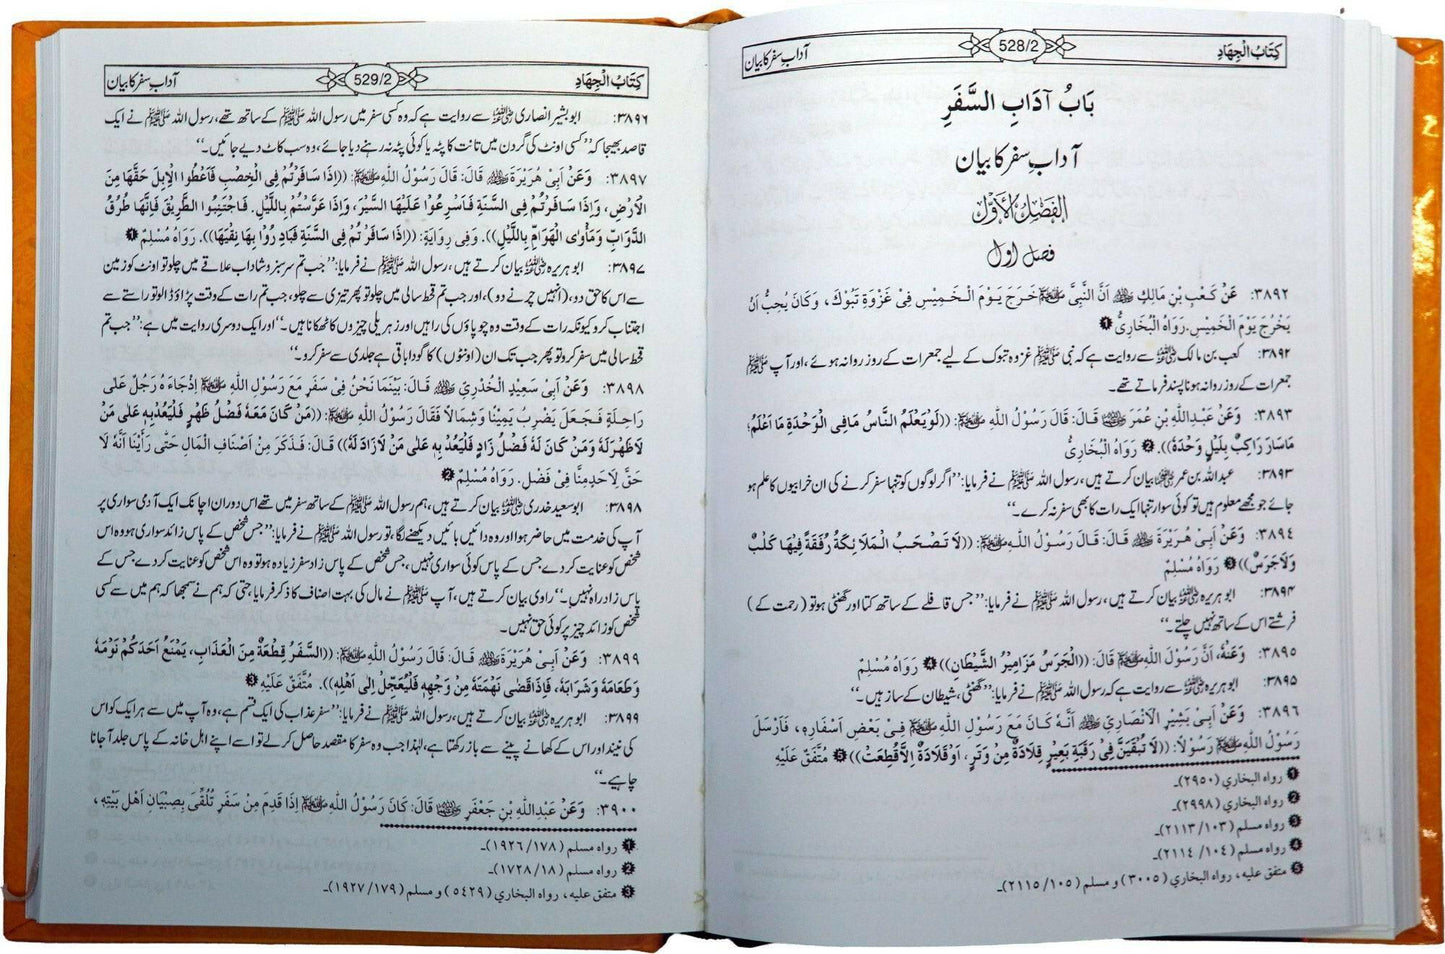 كِتَابُ الْجِهَادِ
528/2
آداب سفر کا بیان
بَابُ آدَابِ السَّفَرِ
آداب سفر کا بیان
اَلْفَصْلُ الْأَوَّلُ
فصل اول
٣٨٩٢: عَنْ كَعْبِ بْنِ مَالِكٍ ﷺ اَنَّ النَّبِیَّ ﷺ خَرَجَ يَوْمَ الْخَمِيْسِ فِیْ غَزْوَةِ تَبُوْكَ، وَكَانَ يُحِبُّ اَنْ
يَخْرُجَ يَوْمَ الْخَمِيْسِ. رَوَاهُ الْبُخَارِیُّ ❶
٣٨٩٢: کعب بن مالک سے روایت ہے کہ نبی ﷺ غزوہ تبوک کے لیے جمعرات کے روز روانہ ہوئے، اور آپ ﷺ
جمعرات کے روز روانہ ہونا پسند فرماتے تھے۔
٣٨٩٣: وَعَنْ عَبْدِاللّٰهِ بْنِ عُمَرَ قَالَ: قَالَ رَسُوْلُ اللّٰهِ ﷺ: ((لَوْيَعْلَمُ النَّاسُ مَافِی الْوَحْدَةِ مَا اَعْلَمُ؛
مَاسَارَ رَاكِبٌ بِلَيْلٍ وَحْدَهٗ)). ❷ رَوَاهُ الْبُخَارِیُّ
٣٨٩٣: عبداللہ بن عمر بیان کرتے ہیں، رسول اللہ ﷺ نے فرمایا: ’’اگر لوگوں کو تنہا سفر کرنے کی ان خرابیوں کا علم ہو
جائے جو مجھے معلوم ہیں تو کوئی سوار تنہا ایک رات کا بھی سفر نہ کرے۔‘‘
٣٨٩٤: وَعَنْ اَبِیْ هُرَيْرَةَ قَالَ: قَالَ رَسُوْلُ اللّٰهِ ﷺ: ((لَا تَصْحَبُ الْمَلَائِكَةُ رُفْقَةً فِيْهَا كَلْبٌ
وَلَاجَرَسٌ)) ❸ رَوَاهُ مُسْلِمٌ
٣٨٩٤: ابو ہریرہ بیان کرتے ہیں، رسول اللہ ﷺ نے فرمایا: ’’جس قافلے کے ساتھ کتا اور گھنٹی ہو تو (رحمت کے)
فرشتے اس کے ساتھ نہیں چلتے۔‘‘
٣٨٩٥: وَعَنْهُ، اَنَّ رَسُوْلَ اللّٰهِ ﷺ قَالَ: ((الْجَرَسُ مَزَامِيْرُ الشَّيْطَانِ)) ❹ رَوَاهُ مُسْلِمٌ
٣٨٩٥: ابو ہریرہ سے روایت ہے کہ رسول اللہ ﷺ نے فرمایا: ’’گھنٹی، شیطان کے ساز ہیں۔‘‘
٣٨٩٦: وَعَنْ اَبِیْ بَشِيْرِ الْاَنْصَارِیِّ اَنَّهٗ كَانَ مَعَ رَسُوْلِ اللّٰهِ ﷺ فِیْ بَعْضِ اَسْفَارِهٖ، فَاَرْسَلَ
رَسُوْلُ اللّٰهِ ﷺ رَسُوْلًا: ((لَا تُبْقَيَنَّ فِیْ رَقَبَةِ بَعِيْرٍ قِلَادَةٌ مِنْ وَتَرٍ، اَوْقِلَادَةٌ اِلَّاقُطِعَتْ)) ❺ مُتَّفَقٌ عَلَيْهِ
❶ رواه البخاري (٢٩٥٠)۔
❷ رواه البخاري (٢٩٩٨)۔
❸ رواه مسلم (١٠٣/ ٢١١٣)۔
❹ رواه مسلم (١٠٤/ ٢١١٤)۔
❺ متفق عليه، رواه البخاري (٣٠٠٥) و مسلم (١٠٥/ ٢١١٥)۔
كِتَابُ الْجِهَادِ
529/2
آداب سفر کا بیان
٣٨٩٦: ابو بشیر انصاری سے روایت ہے کہ وہ کسی سفر میں رسول اللہ ﷺ کے ساتھ تھے، رسول اللہ ﷺ نے ایک
قاصد بھیجا کہ ’’کسی اونٹ کی گردن میں تانت کا پٹہ یا کوئی پٹہ نہ رہنے دیا جائے، وہ سب کاٹ دیے جائیں۔‘‘
٣٨٩٧: وَعَنْ اَبِیْ هُرَيْرَةَ قَالَ: قَالَ رَسُوْلُ اللّٰهِ ﷺ: ((اِذَا سَافَرْتُمْ فِی الْخِصْبِ فَاَعْطُوا الْاِبِلَ حَقَّهَا مِنَ
الْاَرْضِ، وَاِذَا سَافَرْتُمْ فِی السَّنَةِ فَاَسْرِعُوْا عَلَيْهَا السَّيْرَ، وَاِذَا عَرَّسْتُمْ بِاللَّيْلِ. فَاجْتَنِبُوا الطَّرِيْقَ فَاِنَّهَا طُرُقُ
الدَّوَآبِّ وَمَأْوَی الْهَوَامِّ بِاللَّيْلِ)). وَفِیْ رِوَايَةٍ: ((اِذَا سَافَرْتُمْ فِی السَّنَةِ فَبَادِرُوْا بِهَا نِقْيَهَا)). رَوَاهُ مُسْلِمٌ ❶
٣٨٩٧: ابو ہریرہ بیان کرتے ہیں، رسول اللہ ﷺ نے فرمایا: ’’جب تم سرسبز و شاداب علاقے میں چلو تو اونٹ کو زمین
سے اس کا حق دو، (انہیں چرنے دو)، اور جب تم قحط سالی میں چلو پھر تیزی سے چلو، جب تم رات کے وقت پڑاؤ ڈالو تو راستے سے
اجتناب کرو کیونکہ رات کے وقت وہ چوپاؤں کی راہیں اور زہریلی چیزوں کا ٹھکانا ہیں۔‘‘ اور ایک دوسری روایت میں ہے: ’’جب تم
قحط سالی میں سفر کرو تو پھر جب تک ان (اونٹوں) کا گودا باقی ہے جلدی سے سفر کرو۔‘‘
٣٨٩٨: وَعَنْ اَبِیْ سَعِيْدِ الْخُدْرِیِّ قَالَ: بَيْنَمَا نَحْنُ فِیْ سَفَرٍ مَعَ رَسُوْلِ اللّٰهِ ﷺ اِذْجَاءَهٗ رَجُلٌ عَلٰی
رَاحِلَةٍ فَجَعَلَ يَضْرِبُ يَمِيْنًا وَشِمَالًا فَقَالَ رَسُوْلُ اللّٰهِ ﷺ: ((مَنْ كَانَ مَعَهٗ فَضْلُ ظَهْرٍ فَلْيَعُدْبِهٖ عَلٰی مَنْ
لَاظَهْرَلَهٗ وَمَنْ كَانَ لَهٗ فَضْلُ زَادٍ فَلْيَعُدْ بِهٖ عَلٰی مَنْ لَازَادَ لَهٗ)) قَالَ: فَذَكَرَ مِنْ اَصْنَافِ الْمَالِ حَتّٰی رَأَيْنَا اَنَّهٗ لَا
حَقَّ لِاَحَدٍمِنَّا فِیْ فَضْلٍ. رَوَاهُ مُسْلِمٌ ❷
٣٨٩٨: ابو سعید خدری بیان کرتے ہیں، ہم رسول اللہ ﷺ کے ساتھ سفر میں تھے اس دوران اچانک ایک آدمی سواری پر
آپ کی خدمت میں حاضر ہوا اور وہ دائیں بائیں دیکھنے لگا، تو رسول اللہ ﷺ نے فرمایا: ’’جس شخص کے پاس زائد سواری ہو وہ اس
شخص کو عنایت کر دے جس کے پاس کوئی سواری نہیں، جس شخص کے پاس زاد سفر زیادہ ہو تو وہ اس شخص کو عنایت کر دے جس کے
پاس زاد راہ نہیں۔‘‘ راوی بیان کرتے ہیں، آپ ﷺ نے مال کی بہت اصناف کا ذکر فرمایا، حتی کہ ہم نے سمجھا کہ ہم میں سے کسی
شخص کو زائد چیز پر کوئی حق نہیں۔
٣٨٩٩: وَعَنْ اَبِیْ هُرَيْرَةَ قَالَ: قَالَ رَسُوْلُ اللّٰهِ ﷺ: ((السَّفَرُ قِطْعَةٌ مِنَ الْعَذَابِ، يَمْنَعُ اَحَدَكُمْ نَوْمَهٗ
وَطَعَامَهٗ وَشَرَابَهٗ، فَاِذَاقَضٰی نَهْمَتَهٗ مِنْ وَجْهِهٖ فَلْيُعَجِّلْ اِلٰی اَهْلِهٖ)). مُتَّفَقٌ عَلَيْهِ ❸
٣٨٩٩: ابو ہریرہ بیان کرتے ہیں، رسول اللہ ﷺ نے فرمایا: ’’سفر عذاب کی ایک قسم ہے، وہ آپ میں سے ہر ایک کو اس
کی نیند اور اس کے کھانے پینے سے باز رکھتا ہے، لہٰذا جب وہ سفر کا مقصد حاصل کر لے تو اسے اپنے اہل خانہ کے پاس جلد آ جانا
چاہیے۔‘‘
٣٩٠٠: وَعَنْ عَبْدِاللّٰهِ بْنِ جَعْفَرٍ قَالَ: كَانَ رَسُوْلُ اللّٰهِ ﷺ اِذَا قَدِمَ مِنْ سَفَرٍ تُلُقِّیَ بِصِبْيَانِ اَهْلِ بَيْتِهٖ،
❶ رواه مسلم (١٧٨/ ١٩٢٦)۔
❷ رواه مسلم (١٨/ ١٧٢٨)۔
❸ متفق عليه، رواه البخاري (٥٤٢٩) و مسلم (١٧٩/ ١٩٢٧)۔